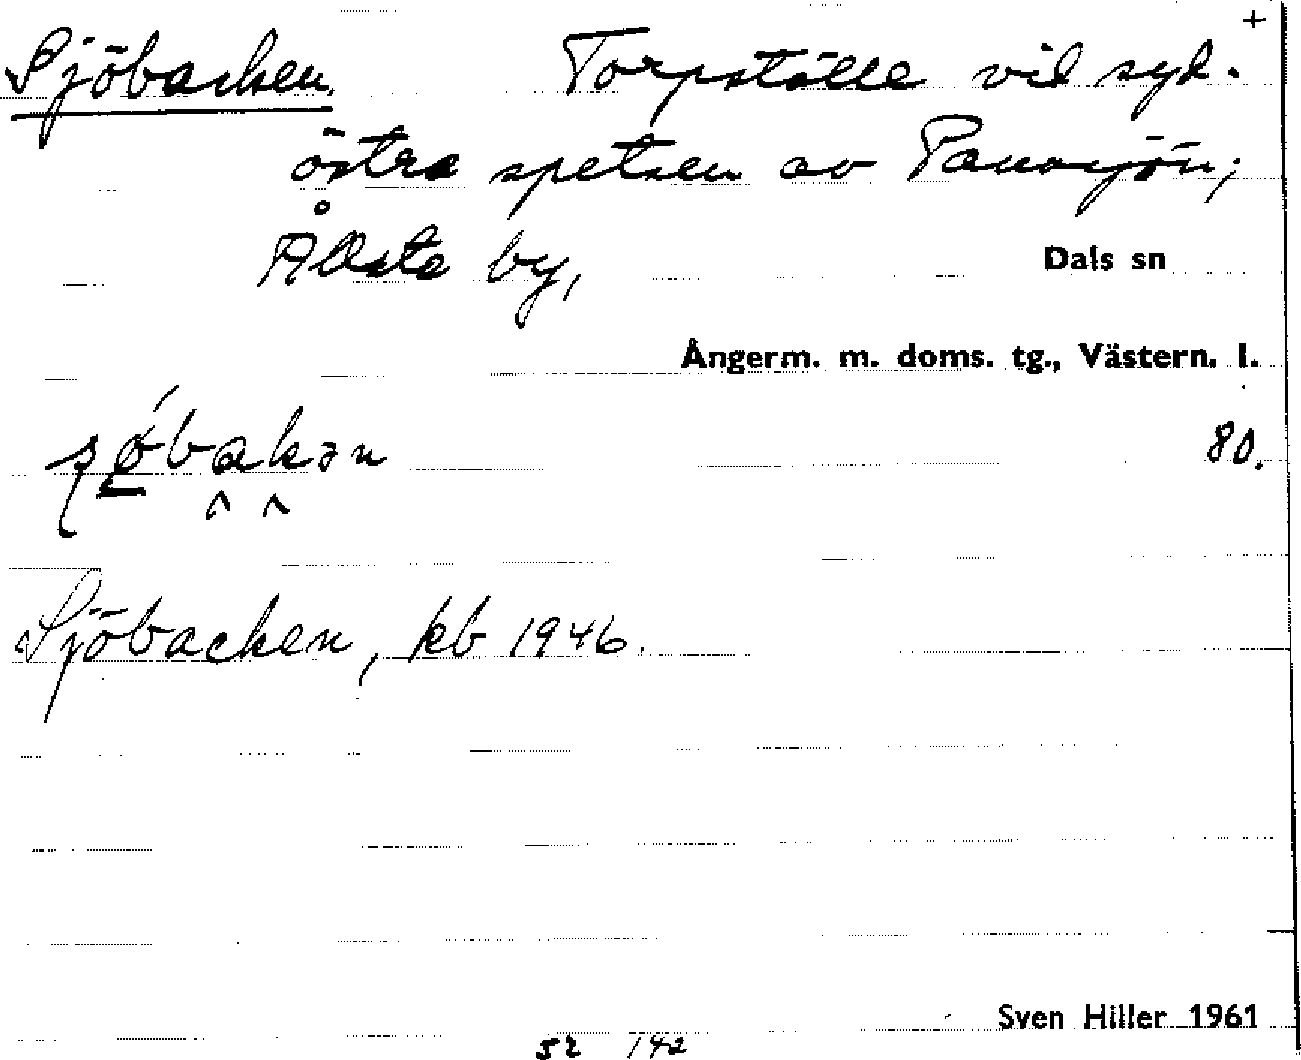 +
Sjöbacken. Torpställe vid syd-
östra spetsen av
Ållsta by, Dals sn
Ångerm. m. doms. tg., Västern. l.
80.
Sjöbacken, kb 1946.
Sven Hiller 1961
52 142